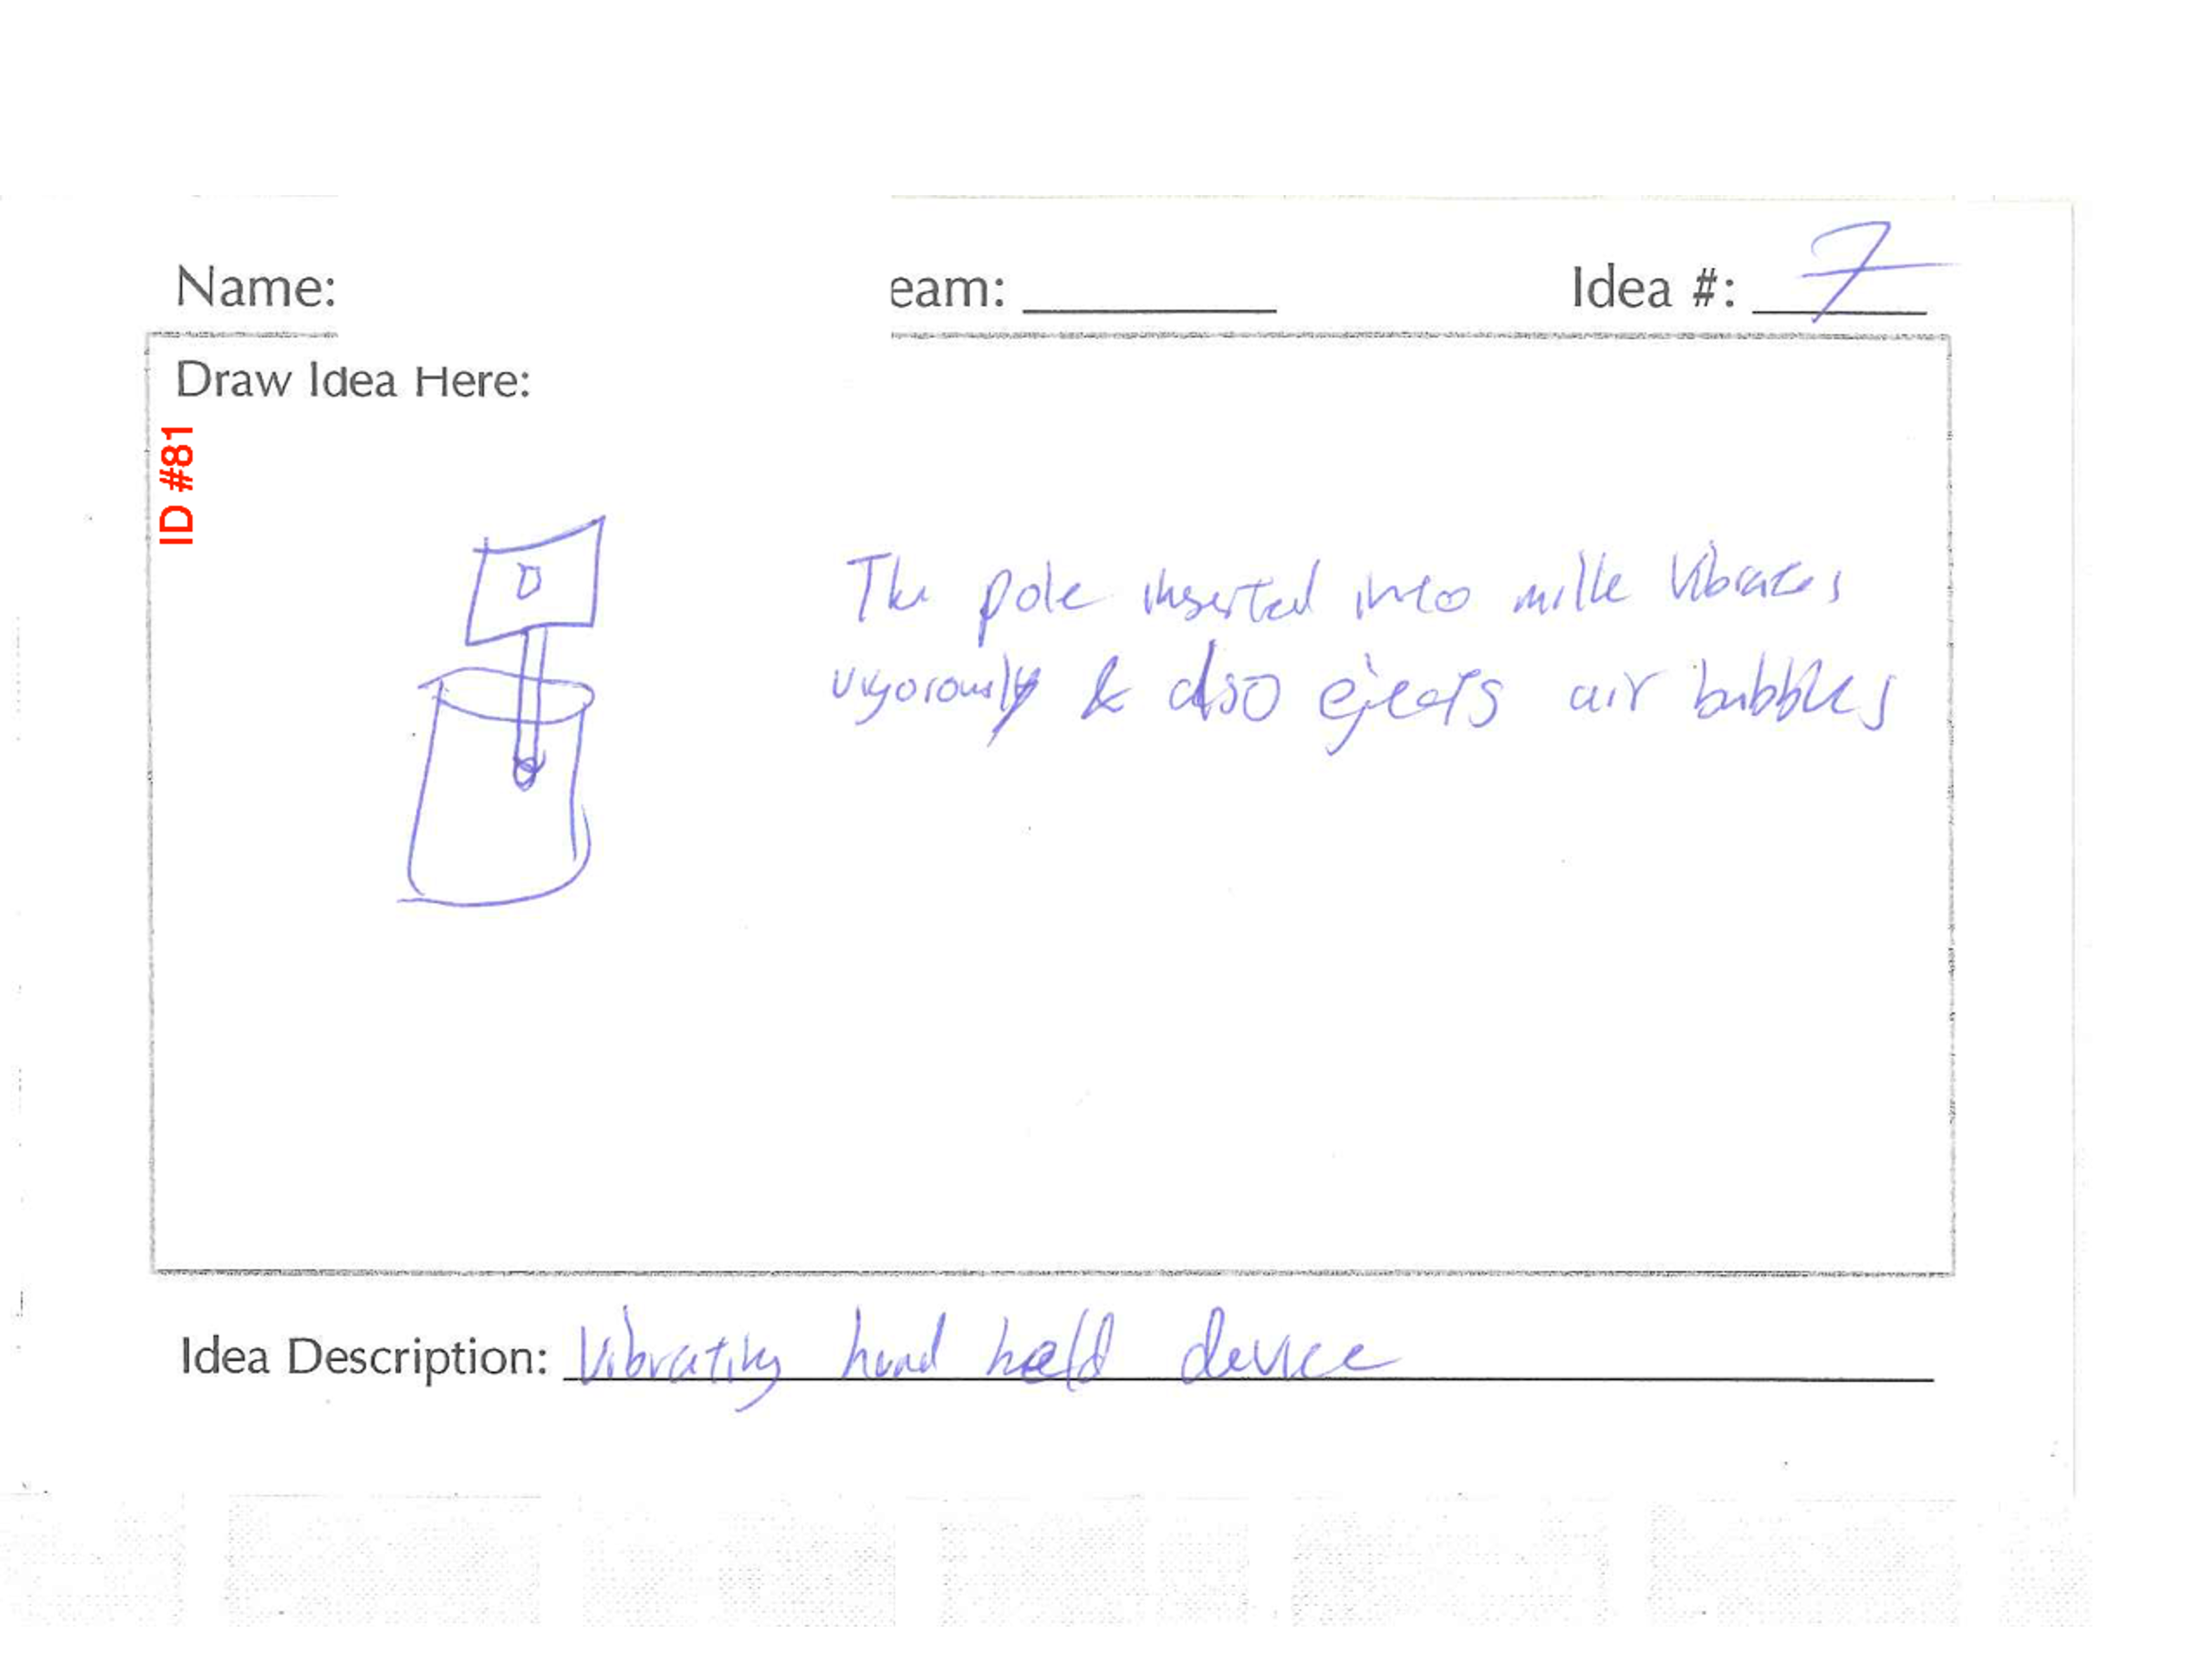 Name:
eam:
Idea #: 7
Draw Idea Here:
ID #81
The pole inserted into milk vibrates
vigorously & also ejects air bubbles
Idea Description: Vibrating hand held device